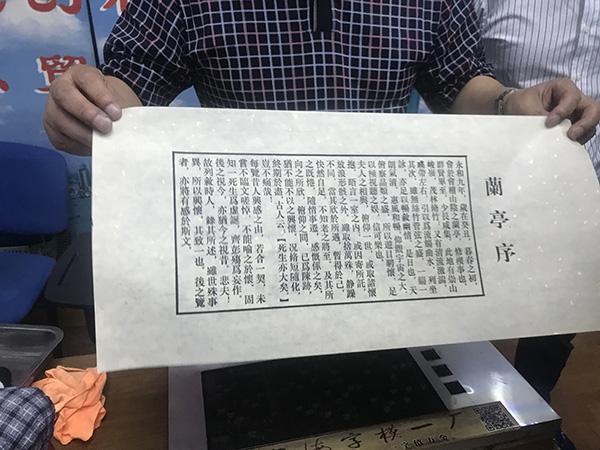 蘭亭序
永和九年，歲在癸丑，暮春之初，
會於會稽山陰之蘭亭，修禊事也。
群賢畢至，少長咸集。此地有崇山
峻嶺，茂林修竹；又有清流激湍，
映帶左右，引以爲流觴曲水，列坐
其次。雖無絲竹管弦之盛，一觴一
詠，亦足以暢敘幽情。是日也，天
朗氣清，惠風和暢，仰觀宇宙之大，
俯察品類之盛，所以遊目騁懷，足
以極視聽之娛，信可樂也。
夫人之相與，俯仰一世，或取諸懷
抱，晤言一室之內；或因寄所託，
放浪形骸之外。雖取捨萬殊，靜躁
不同，當其欣於所遇，暫得於己，
快然自足，不知老之將至。及其所
之既倦，情隨事遷，感慨係之矣。
向之所欣，俯仰之間，已爲陳跡，
猶不能不以之興懷。況修短隨化，
終期於盡。古人云：【死生亦大矣。】
豈不痛哉！
每覽昔人興感之由，若合一契，未
嘗不臨文嗟悼，不能喻之於懷。固
知一死生爲虛誕，齊彭殤爲妄作。
後之視今，亦猶今之視昔。悲夫！
故列敘時人，錄其所述，雖世殊事
異，所以興懷，其致一也。後之覽
者，亦將有感於斯文。
字模一厂